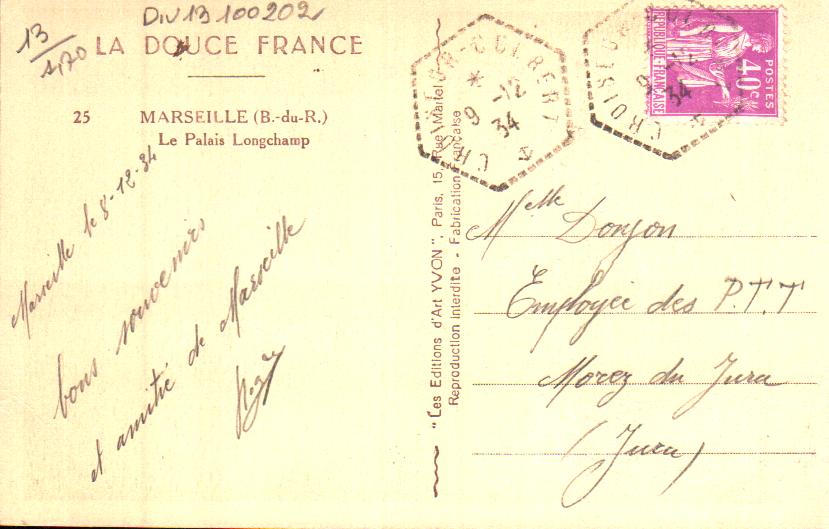 DIV 13 100202
13
1,70
LA DOUCE FRANCE
25 MARSEILLE (B.-du-R.)
Le Palais Longchamp
Marseille le 8-12-34
bons souvenirs
et amitié de Marseille
"Les Editions d'Art YVON", Paris, 15, Rue Martel
Reproduction Interdite - Fabrication Française
COLBERT
9 -12
34
CROISEUR
9 -12
34
REPUBLIQUE-FRANÇAISE
POSTES
40c
Mlle Donjon
Employée des P.T.T
Morez du Jura
(Jura)